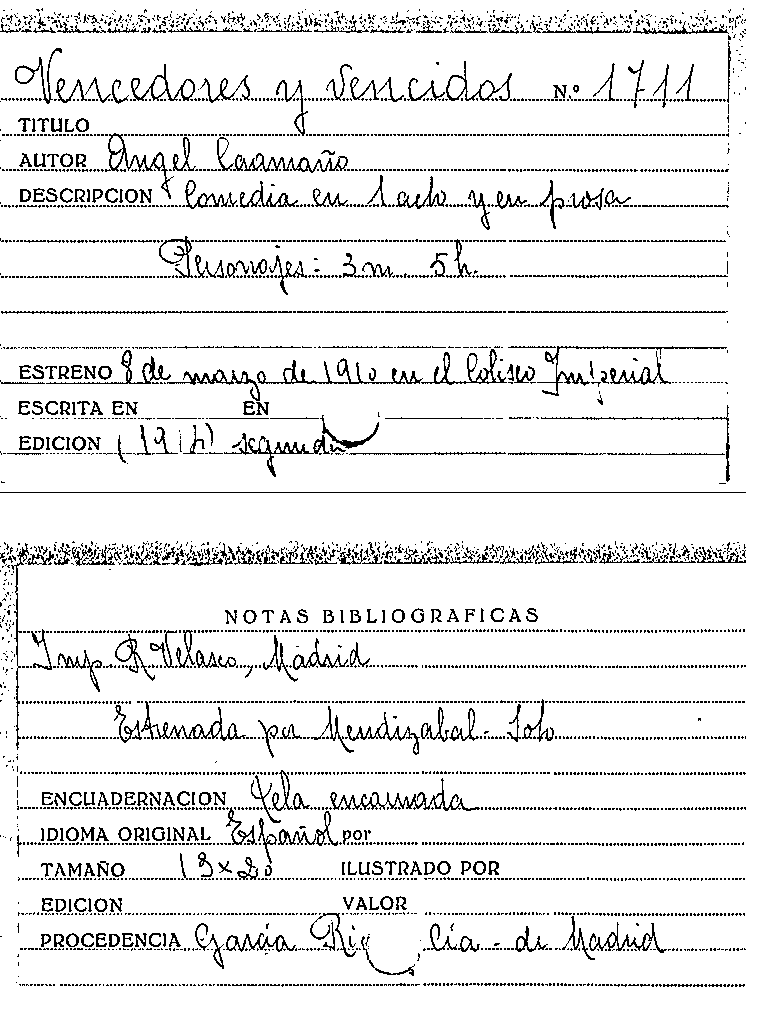 Vencedores y vencidos N.º 1711
TITULO
AUTOR Angel Caamaño
DESCRIPCION Comedia en 1 acto y en prosa
Personajes: 3m. 5h.
ESTRENO 8 de marzo de 1910 en el Coliseo Imperial
ESCRITA EN EN
EDICION (1914) segunda
NOTAS BIBLIOGRAFICAS
Imp R. Velasco, Madrid
Estrenada por Mendizabal - Soto
ENCUADERNACION Tela encarnada
IDIOMA ORIGINAL Español por
TAMAÑO 13x20 ILUSTRADO POR
EDICION VALOR
PROCEDENCIA Garcia Cía - de Madrid